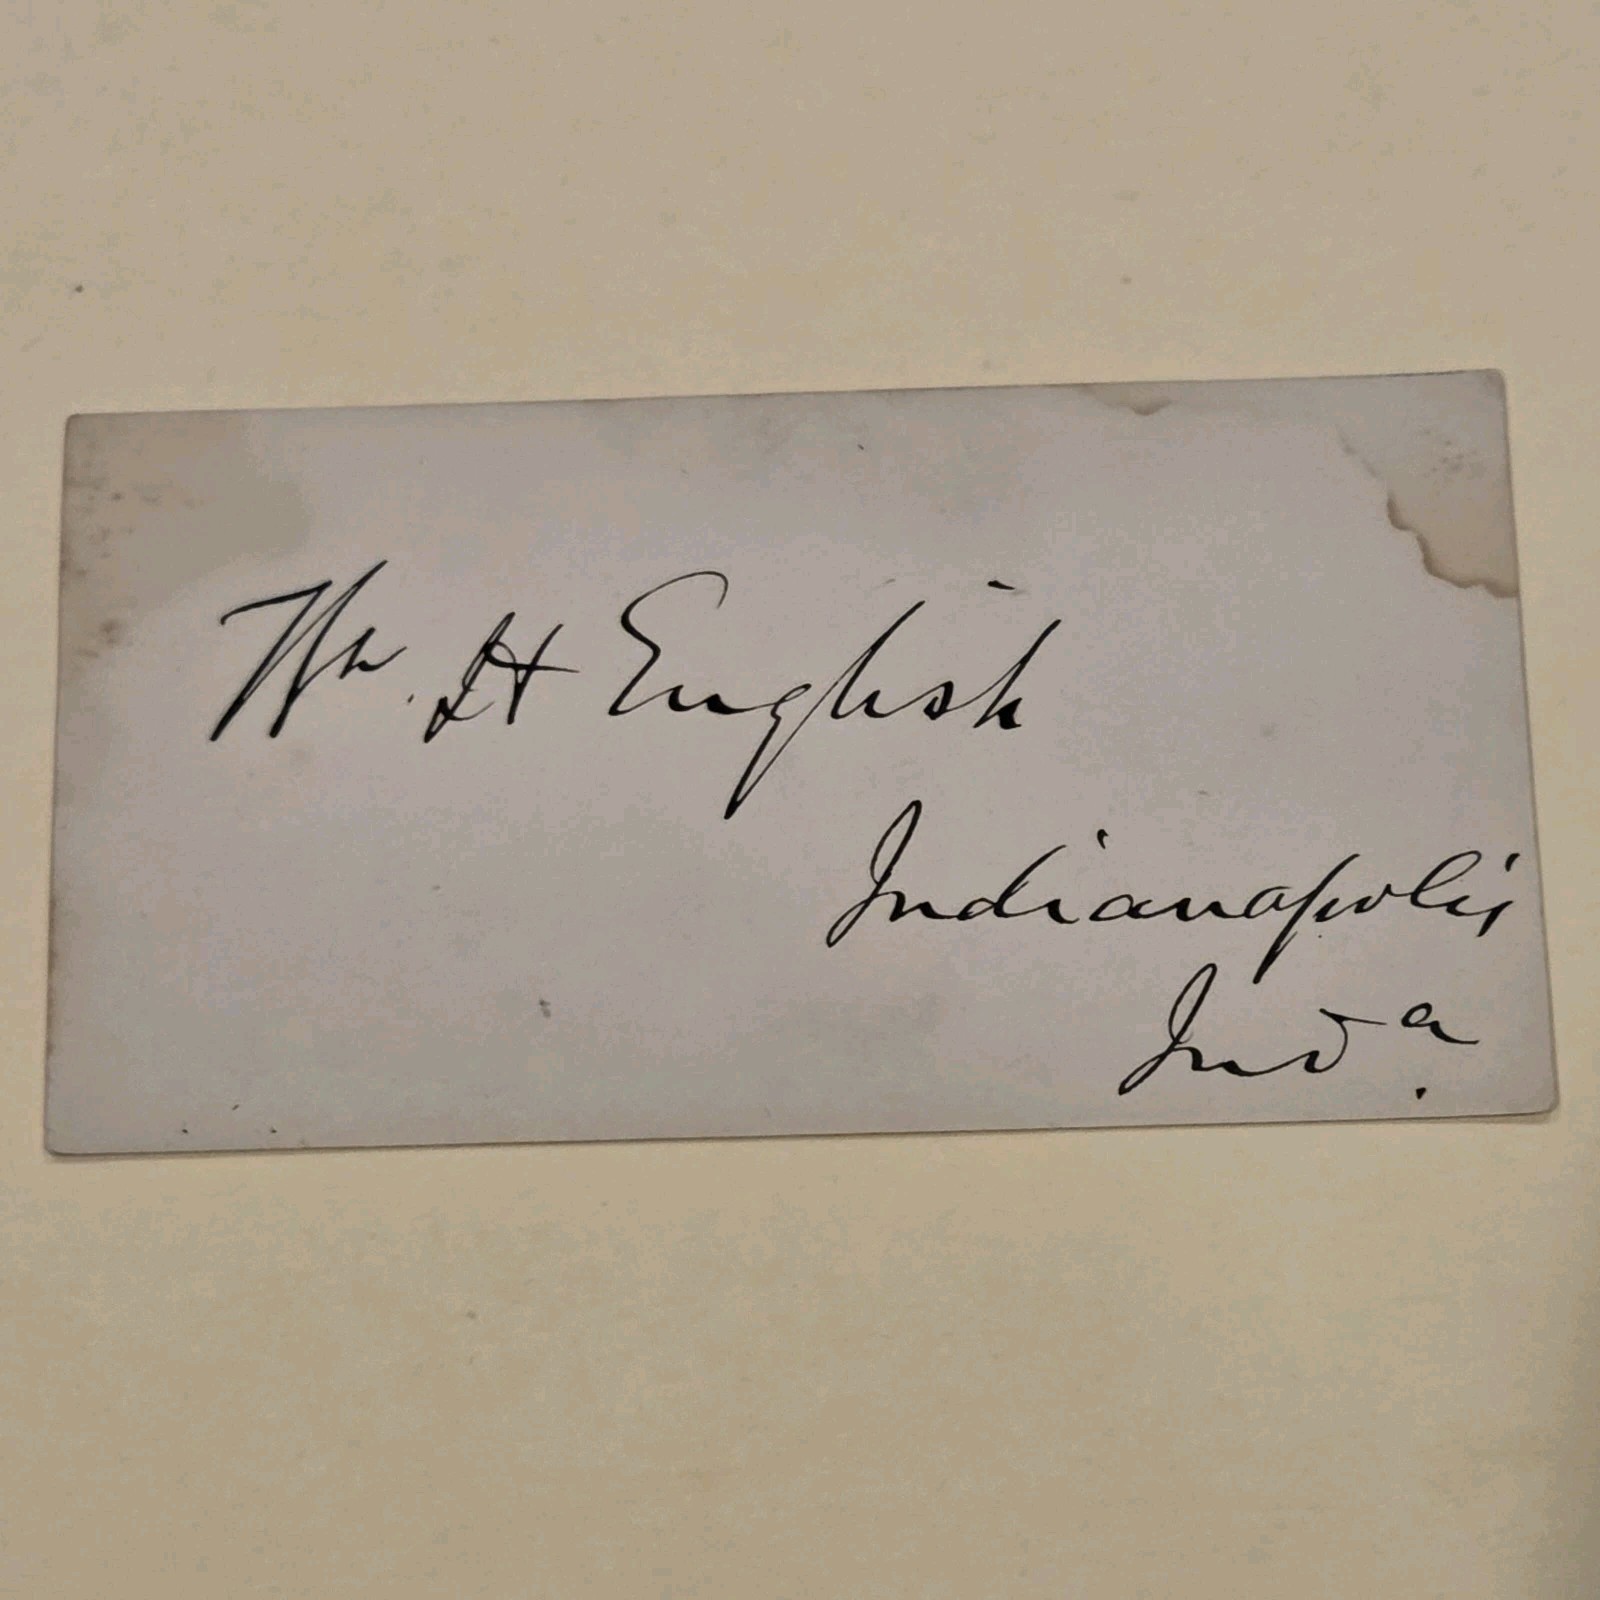 Wm. H English
Indianapolis
Ind a.